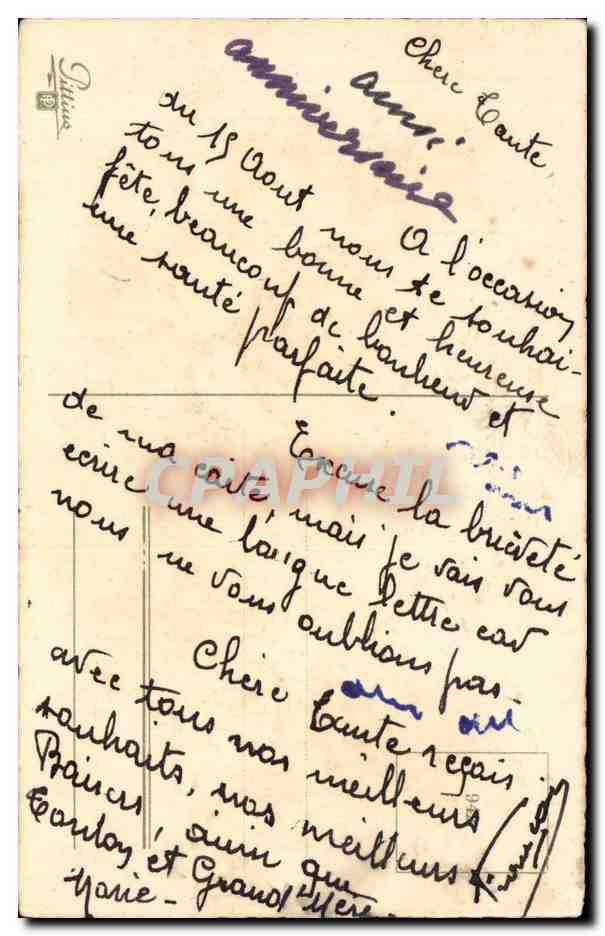 Pittius
Chère Tante,
ami
anniversaire
A l'occasion
du 15 Aout nous te souhai-
tons une bonne et heureuse
fête, beaucoup de bonheur et
une santé parfaite.
Excuse la brièveté
de ma carte, mais je vais vous
ecrire une longue lettre car
nous ne vous oublions pas.
CPAPHIL
Chère Tante reçois
avec tous nos meilleurs
souhaits, nos meilleurs
Baisers, ainsi que
Tonton et Grand Mère
Marie -